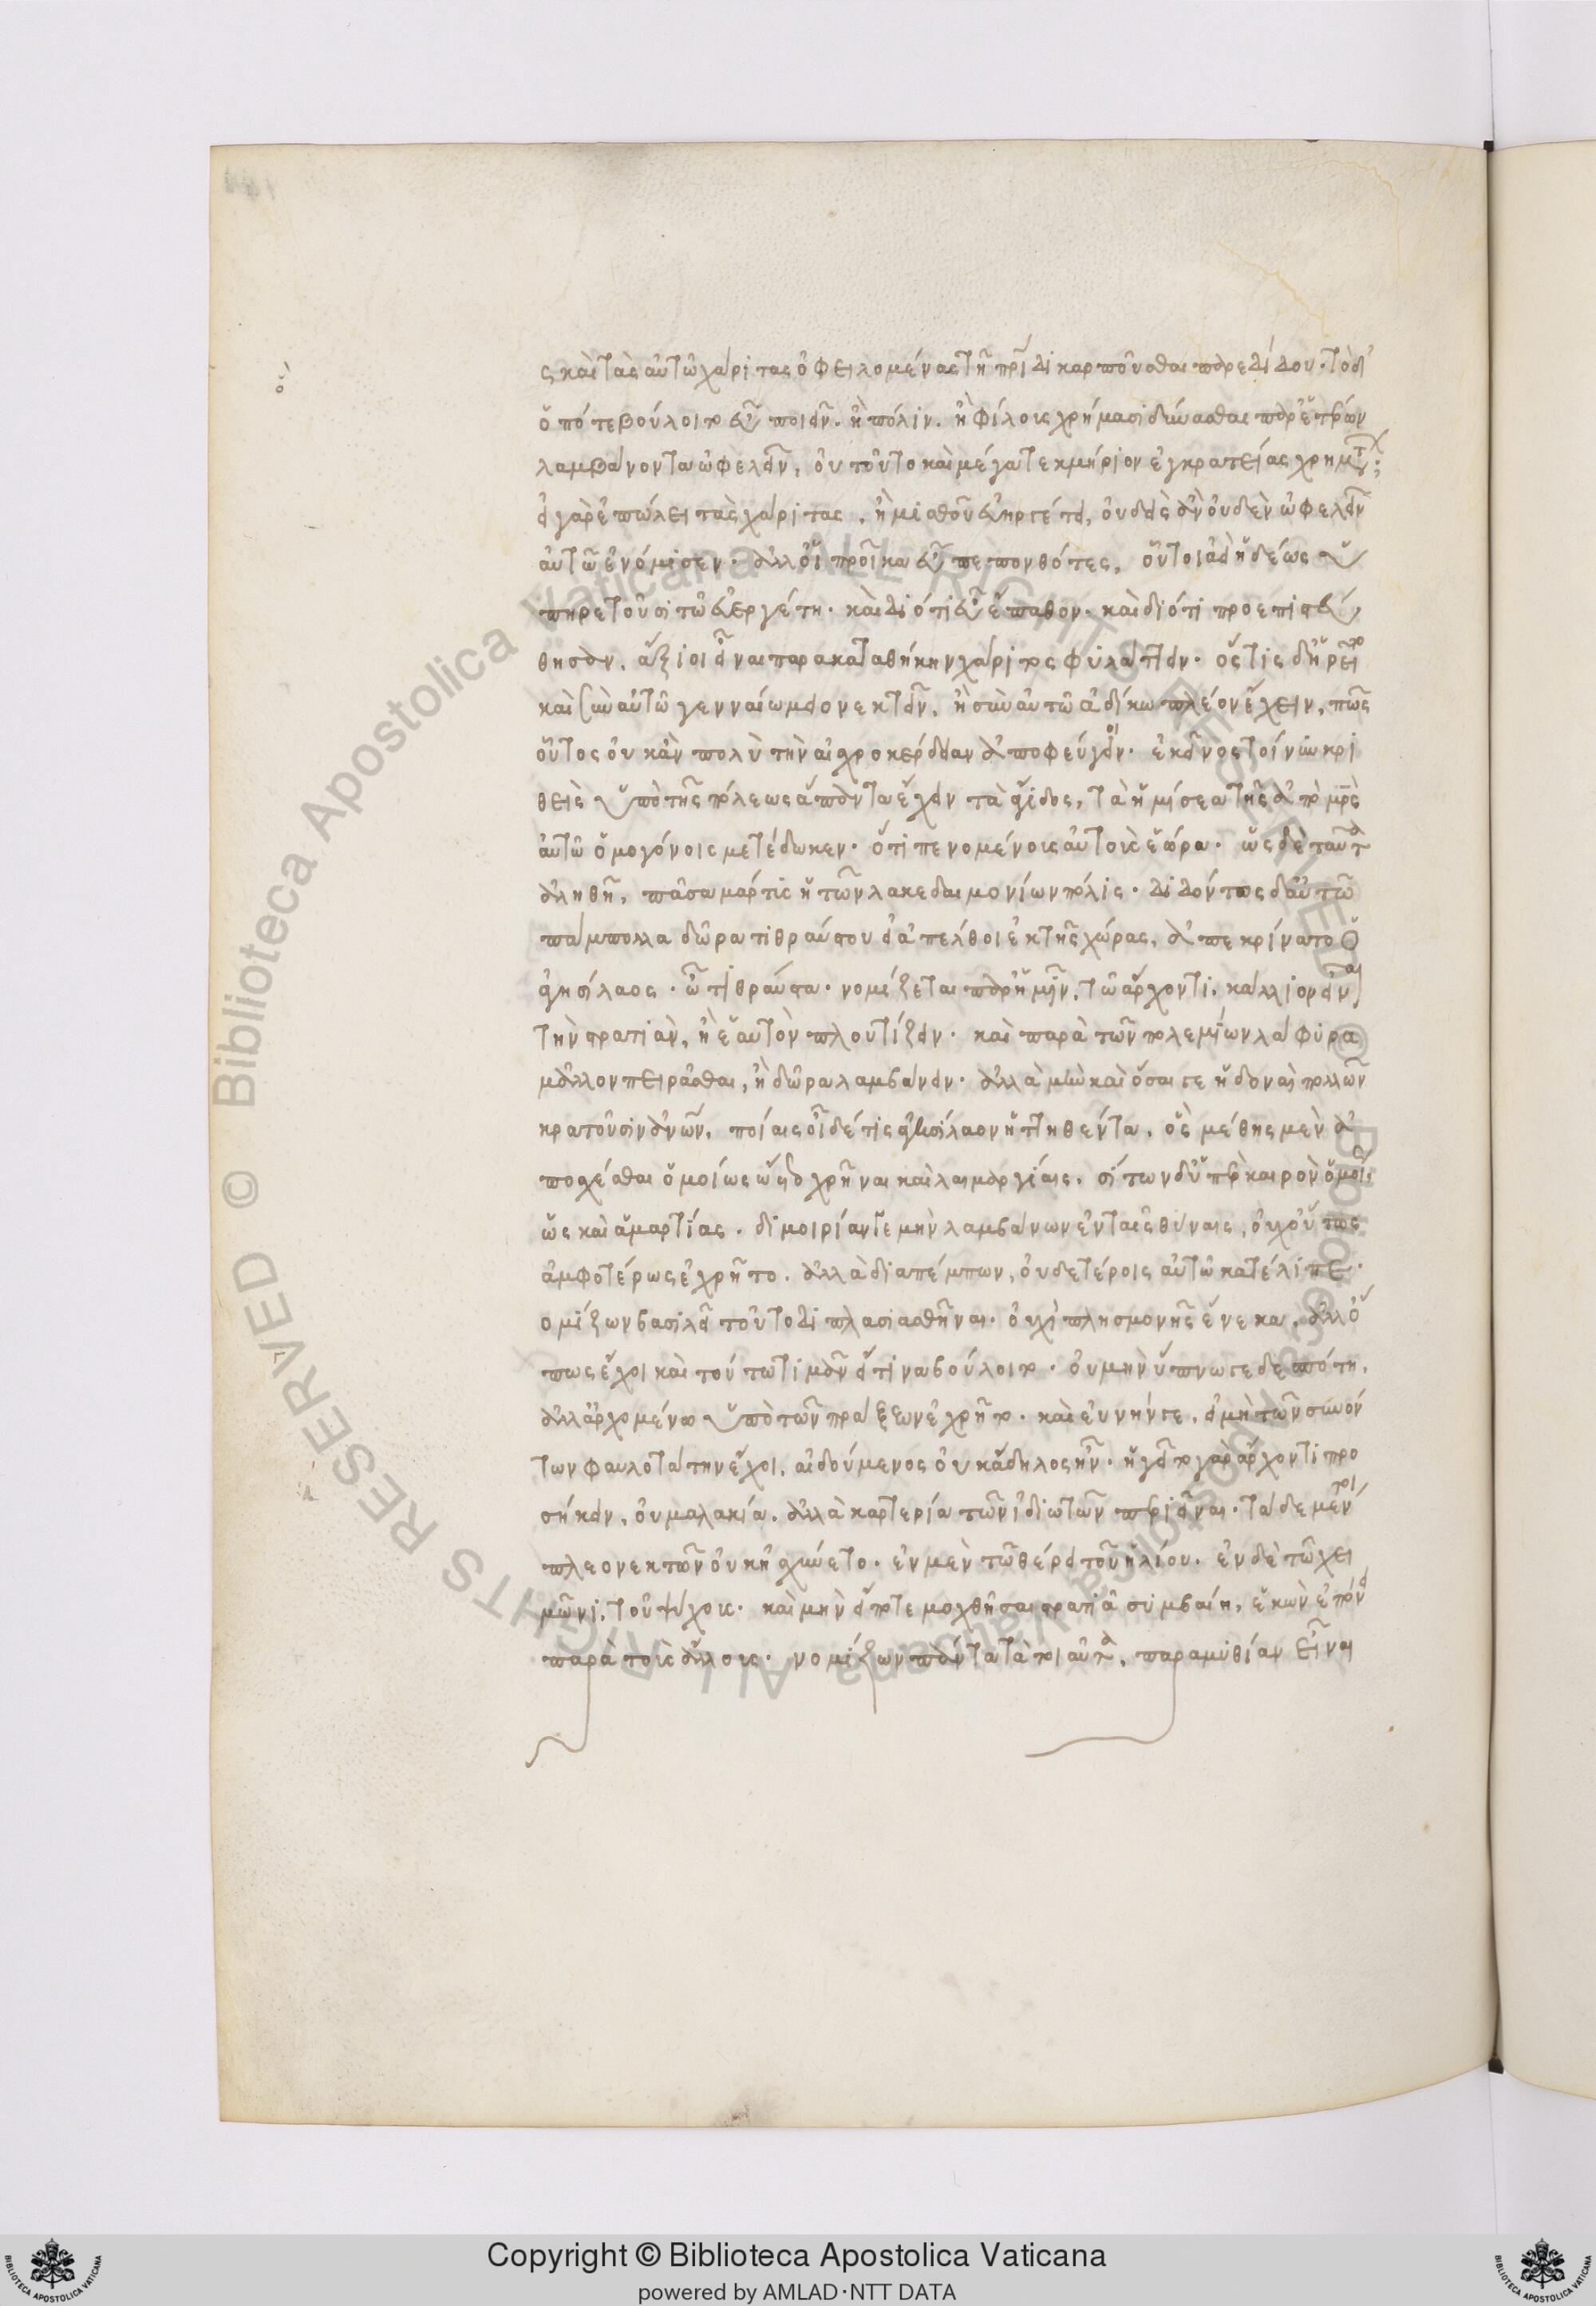 ς καὶ τὰς αὐτῶ χάριτας ὀφειλομένας τῆ πρίδι καρποῦσθαι παρεδίδου. τὸ δ'
ὁπότε βούλοιτο εὖ ποιεῖν. ἢ πόλιν. ἢ φίλους χρήμασι δύνασθαι παρ' ἑτέρων
λαμβάνοντα ὠφελεῖν, οὐ τοῦτο καὶ μέγα τεκμήριον ἐγκρατείας χρημάτων;
εἰ γὰρ ἐπώλει τὰς χάριτας, ἢ μισθοῦ εὐηργέτει, οὐδεὶς ἂν οὐδὲν ὠφελεῖν
αὐτῶ ἐνόμισεν. ἀλλ' οἱ προῖκα εὖ πεπονθότες, οὗτοι ἀεὶ ἡδέως ὑ
πηρετοῦσι τῶ εὐεργέτη. καὶ διότι εὖ ἔπαθον. καὶ διότι προεπιστεύ
θησαν, ἄξιοι εἶναι παρακαταθήκην χάριτος φυλάττειν. ὅςτις δ' ἡρεῖτο
καὶ σὺν αὐτῶ γενναίω μειονεκτεῖν, ἢ σὺν αὐτῶ ἀδίκω πλέον ἔχειν, πῶς
οὗτος οὐκ ἂν πολὺ τὴν αἰσχροκέρδειαν ἀποφεύγοι. ἐκεῖνος τοίνυν κρι
θεὶς ὑπὸ τῆς πόλεως ἅπαντα ἔχειν τὰ ἄγιδος, τὰ ἡμίσεα τῆς ἀπὸ μρὸς
αὐτῶ ὁμογόνοις μετέδωκεν. ὅτι πενομένους αὐτοὺς ἑώρα. ὡς δὲ ταῦτα
ἀληθῆ, πᾶσα μάρτις ἡ τῶν λακεδαιμονίων πόλις. διδόντος δ' αὐτῶ
πάμπολλα δῶρα τιθραύστου εἰ ἀπέλθοι ἐκ τῆς χώρας, ἀπεκρίνατο ὁ
ἀγησίλαος. ὦ τιθραῦστα. νομίζεται παρ' ἡμῖν, τῶ ἄρχοντι. κάλλιον εἶναι
τὴν στρατιὰν, ἢ ἑαυτὸν πλουτίζειν. καὶ παρὰ τῶν πολεμίων λάφυρα
μᾶλλον πειρᾶσθαι, ἢ δῶρα λαμβάνειν. ἀλλὰ μὴν καὶ ὅσαι γε ἡδοναὶ πολλῶν
κρατοῦσιν ἀνων, ποίας οἶδέ τις ἀγησίλαον ἡττηθέντα, ὃς μέθης μὲν ἀ
ποσχέσθαι ὁμοίως ὤετο χρῆναι καὶ λαιμαργίας. σίτων δ' ὑπὲρ καιρὸν ὁμοί
ως καὶ ἁμαρτίας. διμοιρίαν γε μὴν λαμβάνων ἐν ταῖς θοίναις, οὐχ' ὅπως
ἀμφοτέρως ἐχρῆτο. ἀλλὰ διαπέμπων, οὐδετέροις αὐτῶ κατέλιπε.
ομίζων βασιλεῖ τοῦτο διπλασιασθῆναι. οὐχὶ πλησμονῆς ἕνεκα, ἀλλ' ὅ
πως ἔχοι καὶ τούτω τιμᾶν εἴ τινα βούλοιτο. οὐ μὴν ὕπνω γε δεσπότη,
ἀλλ' ἀρχομένω ὑπὸ τῶν πράξεων ἐχρῆτο. καὶ εὐνήν γε, εἰ μὴ τῶν συνόν
των φαυλοτάτην ἔχοι, αἰδούμενος οὐκ ἄδηλος ἦν. ἡγεῖτο γὰρ ἄρχοντι προ
σήκειν, οὐ μαλακία, ἀλλὰ καρτερία τῶν ἰδιωτῶν περιεῖναι. τάδε μέντοι
πλεονεκτῶν οὐκ ἠσχύνετο. ἐν μὲν τῶ θέρει τοῦ ἡλίου. ἐν δὲ τῶ χει
μῶνι, τοῦ ψύχους. καὶ μὴν εἴ ποτε μοχθῆσαι στρατιᾶ συμβαίη, ἑκὼν ἐπόνει
παρὰ τοὺς ἄλλους. νομίζων πάντα τὰ τοιαῦτα, παραμυθίαν εἶναι
Copyright © Biblioteca Apostolica Vaticana
powered by AMLAD·NTT DATA